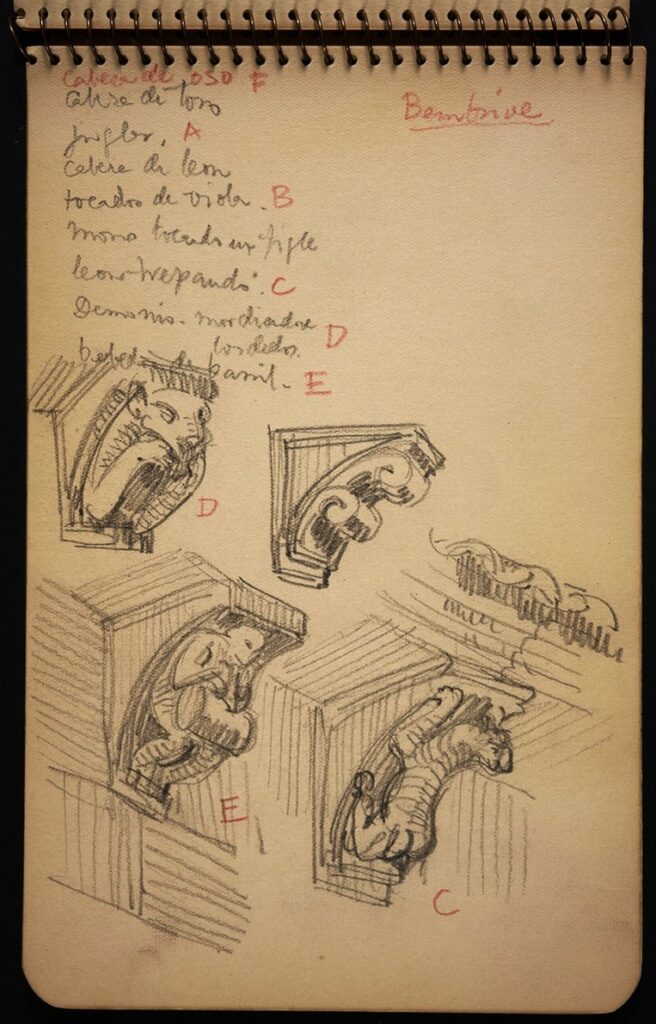 Cabeza de oso F
Bembrive
Cabeza de toro
juglar. A
Cabeza de leon
tocador de viola. B
mono tocando un
leon trepando. C
Demonio mordiendose
los dedos. D
bebedor de barril. E
D
E
C